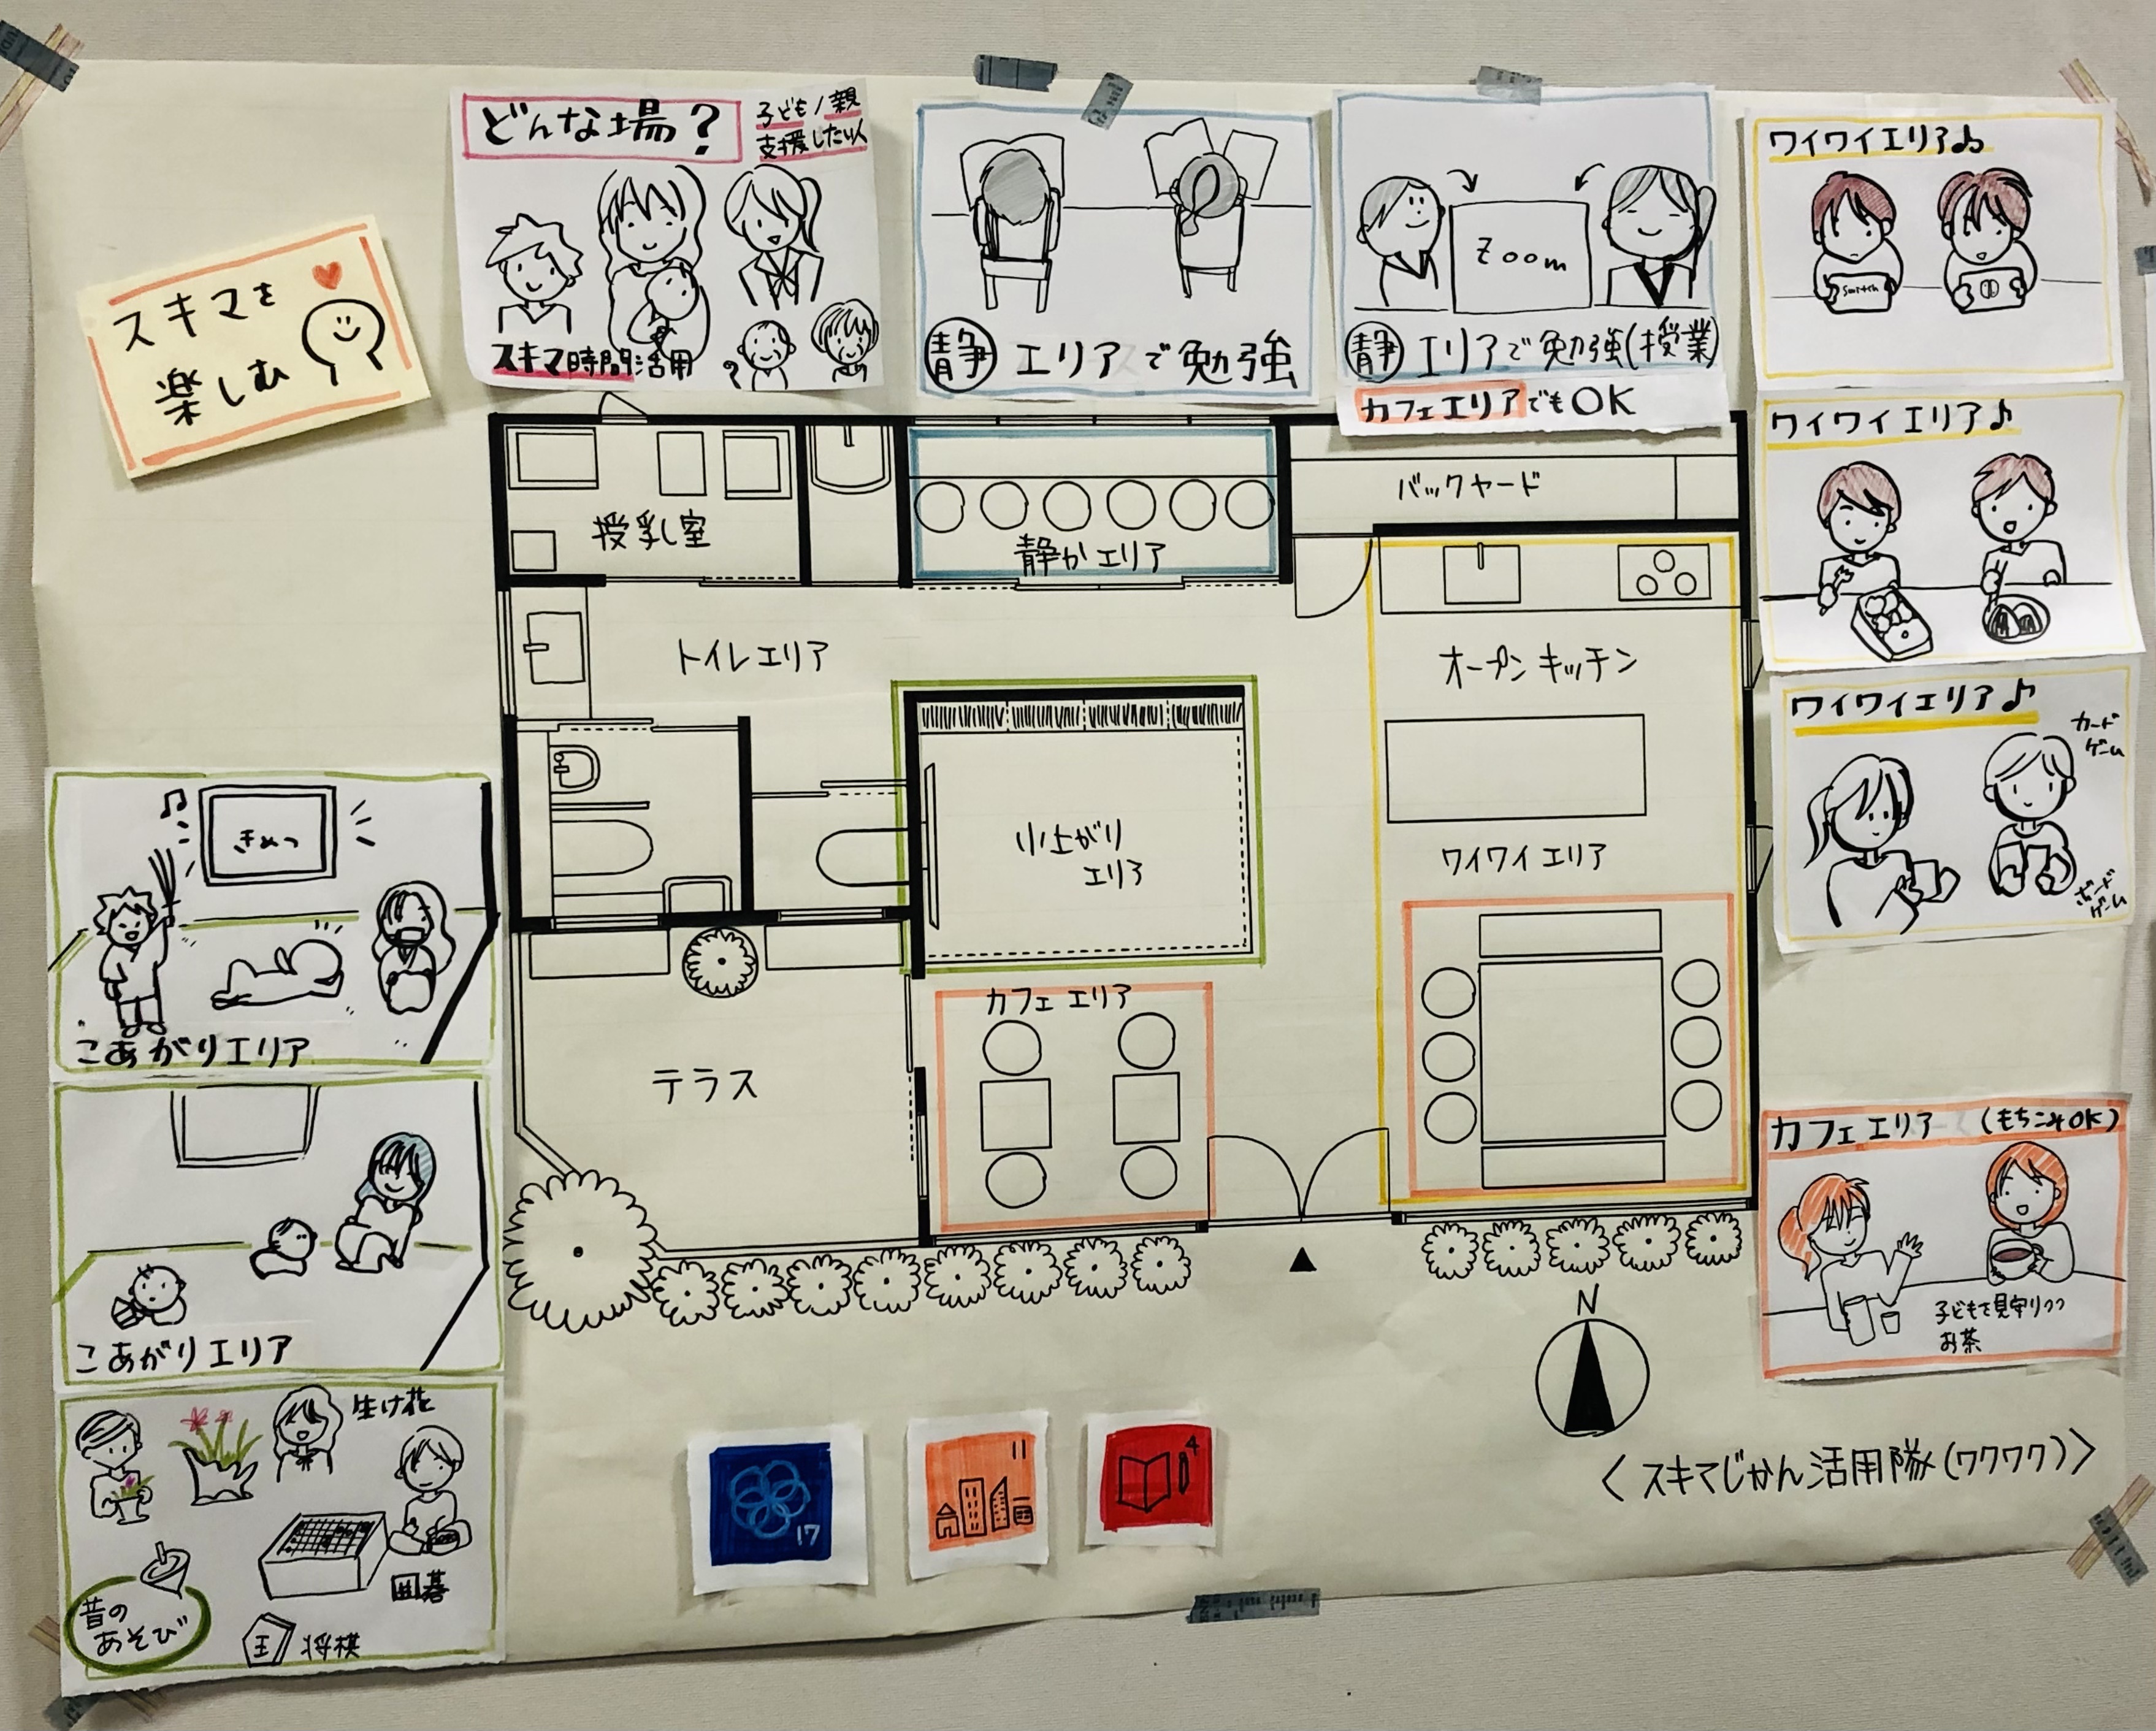 スキマを
楽しむ
どんな場?
子ども/親
支援したい人
スキマ時間活用
静 エリアで勉強
Zoom
静 エリアで勉強(授業)
カフェエリアでもOK
ワイワイエリア♪
Switch
ワイワイエリア♪
ワイワイエリア♪
カード
ゲーム
ボード
ゲーム
カフェエリア (もちこみOK)
子どもを見守りつつ
お茶
授乳室
静かエリア
バックヤード
トイレエリア
オープンキッチン
小上がり
エリア
ワイワイエリア
カフェエリア
テラス
こあがりエリア
こあがりエリア
生け花
囲碁
昔の
あそび
王 将棋
17
11
4
N
<スキマじかん活用隊(ワクワク)>